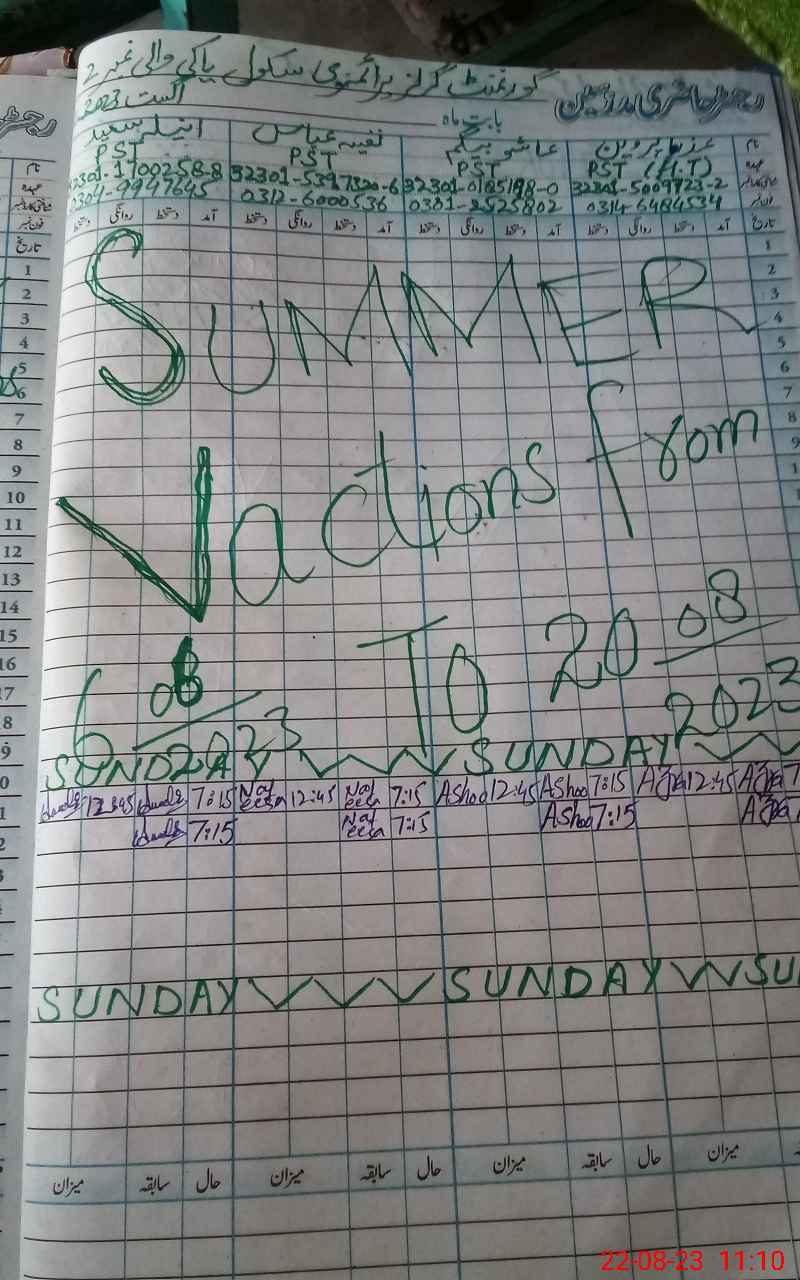 گورنمنٹ گرلز پرائمری سکول پاکی والی نمبر 2
رجسٹر حاضری مدرسین بابت ماہ اگست 2023
نام عزرا پروین عاشو بیگم نفیسہ عباس انیلہ سعید
عہدہ PST (H.T) PST PST PST
32301-1700258-8 32301-5397320-6 32301-0185198-0 32301-5009723-2
0304-9947645 0312-6000536 0301-2525802 0314-6484534
تاریخ آمد دستخط روانگی دستخط آمد دستخط روانگی دستخط آمد دستخط روانگی دستخط آمد دستخط روانگی دستخط
SUMMER
Vactions from
6 08 2023 TO 20 08 2023
SUNDAY SUNDAY
12:45 7:15 Naf eesa 12:45 Naf eesa 7:15 Ashoo 12:45 Ashoo 7:15 Azra 12:45 Azra 7
7:15 Naf eesa 7:15 Ashoo 7:15 Azra
SUNDAY SUNDAY SU
میزان سابقہ حال میزان سابقہ حال میزان سابقہ حال میزان
1
2
3
4
5
6
7
8
9
10
11
12
13
14
15
16
17
18
22-08-23 11:10